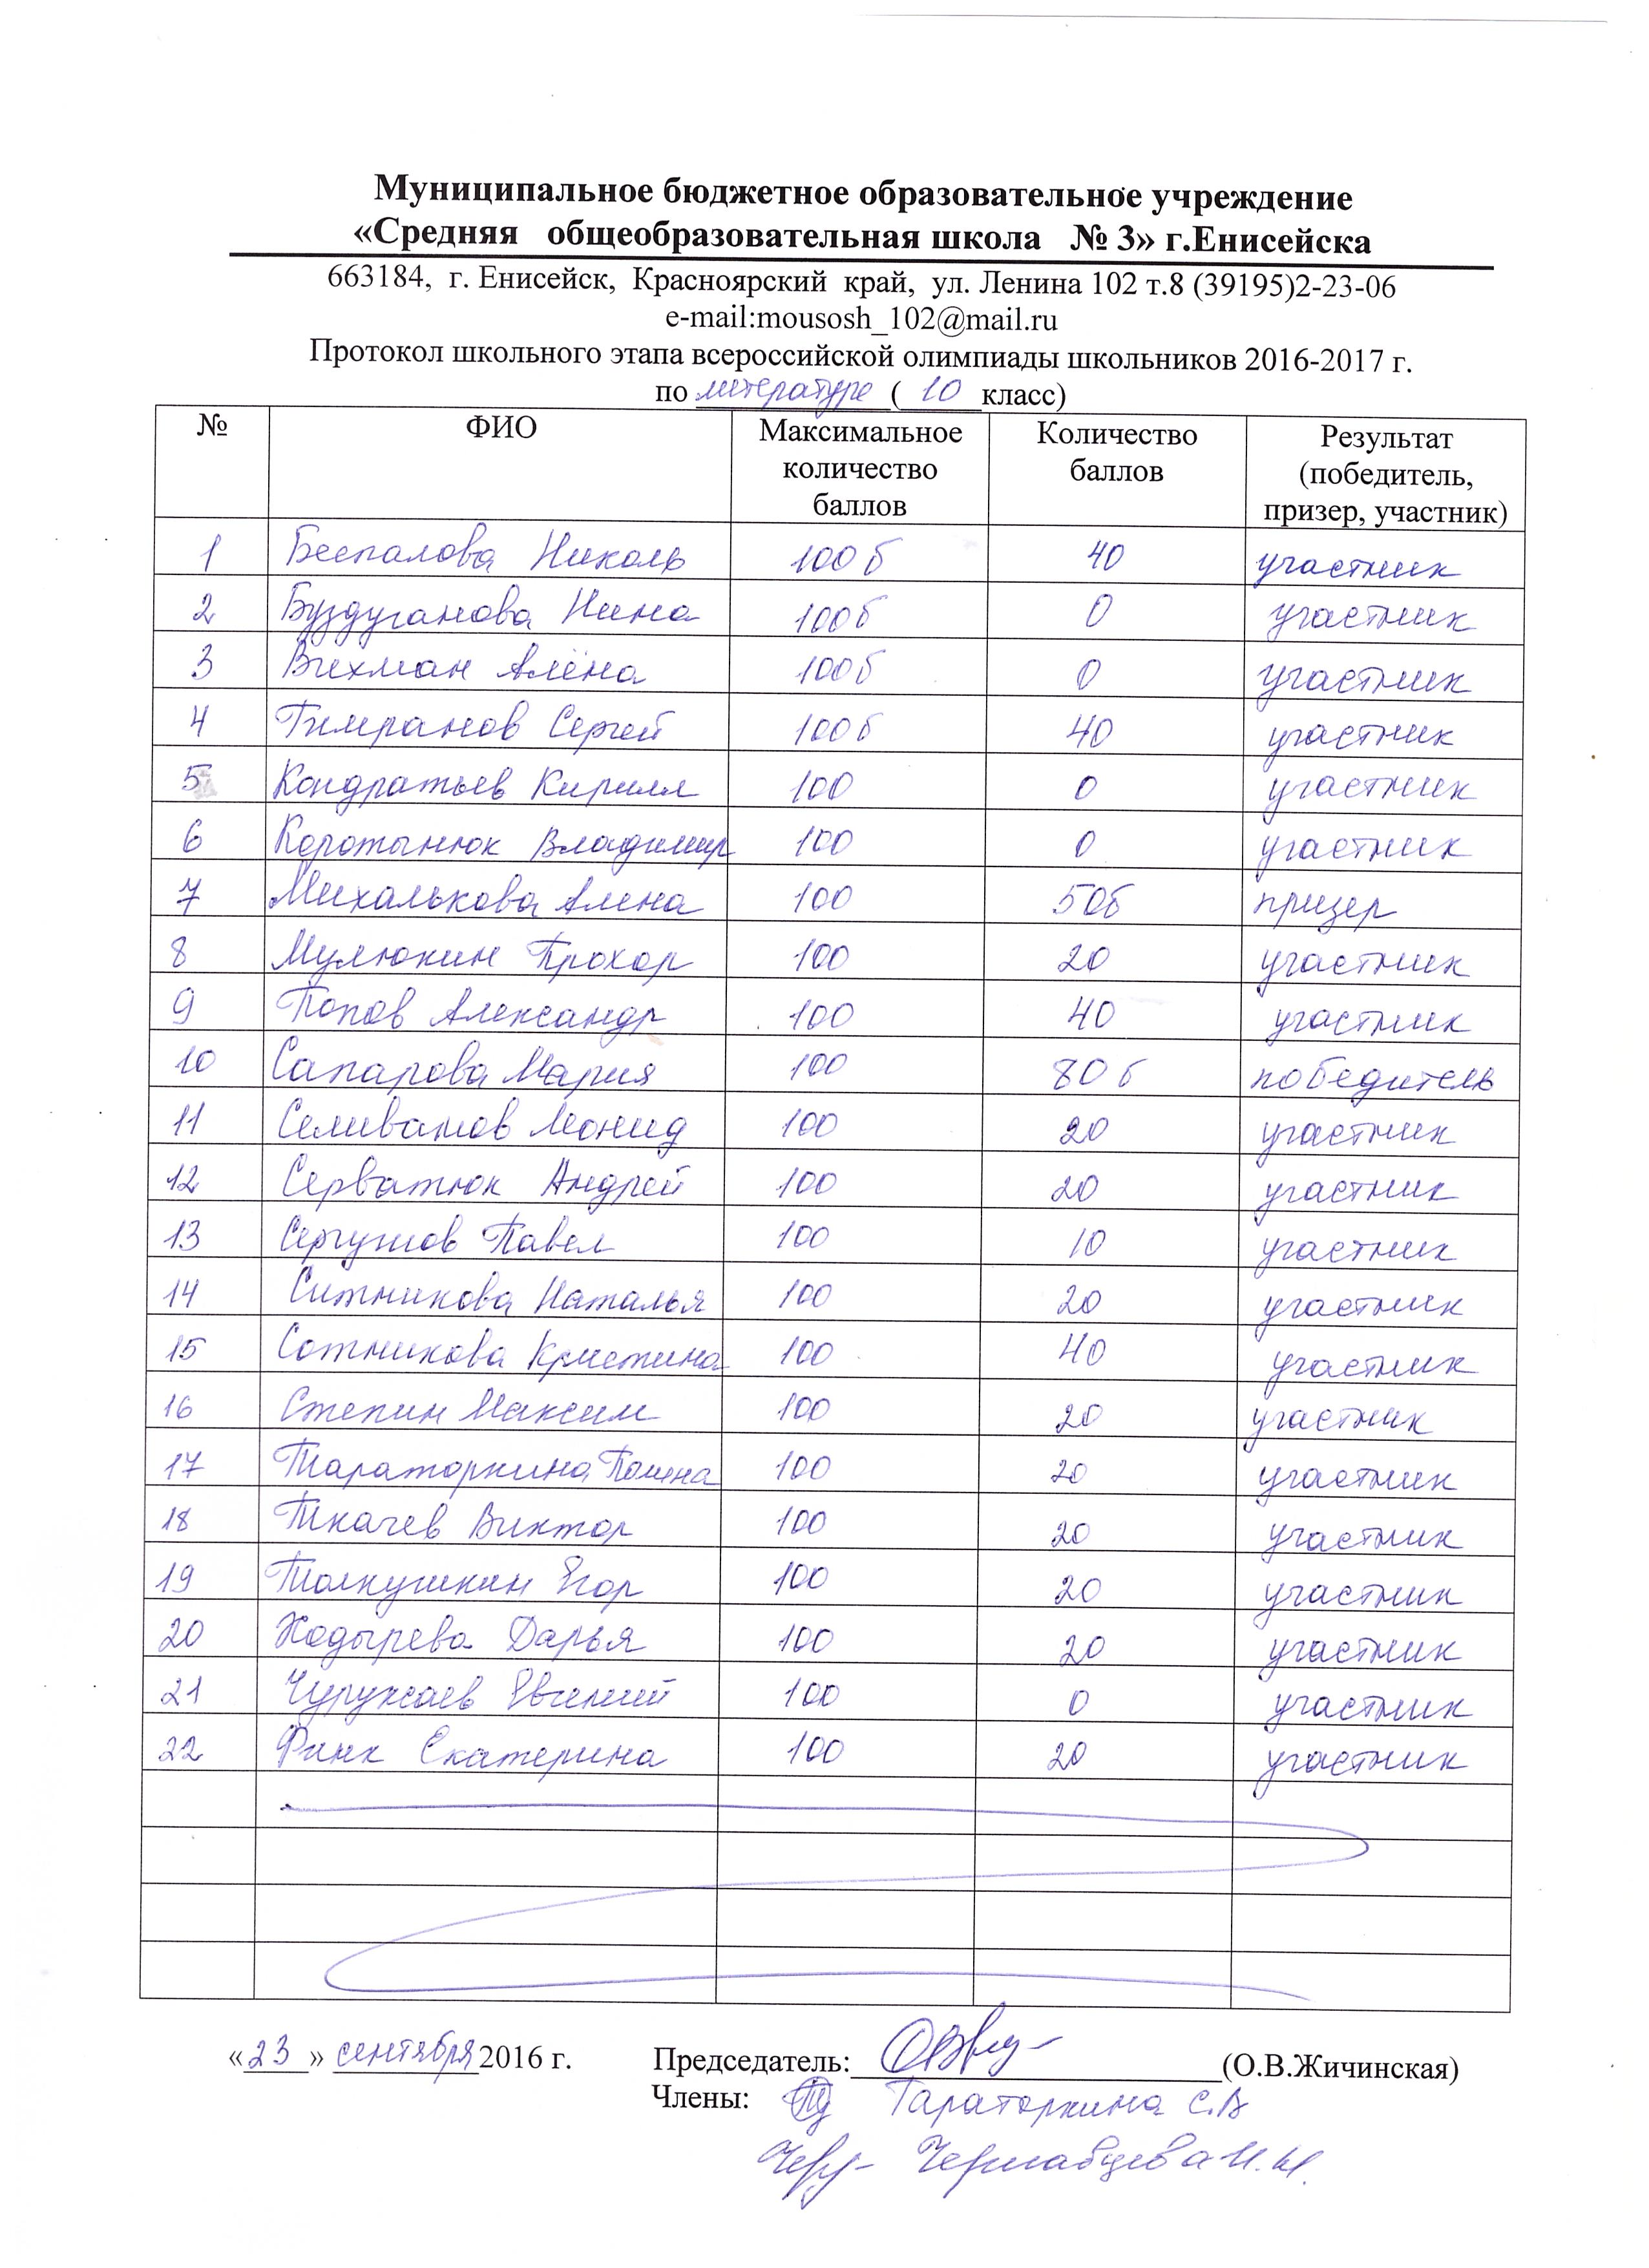 Муниципальное бюджетное образовательное учреждение
«Средняя общеобразовательная школа № 3» г.Енисейска
663184, г. Енисейск, Красноярский край, ул. Ленина 102 т.8 (39195)2-23-06
e-mail:mousosh_102@mail.ru
Протокол школьного этапа всероссийской олимпиады школьников 2016-2017 г.
по литературе ( 10 класс)
№ ФИО Максимальное количество баллов Количество баллов Результат (победитель, призер, участник)
1 Беспалова Николь 100б 40 участник
2 Буздуганова Нина 100б 0 участник
3 Вихман Алёна 100б 0 участник
4 Гимранов Сергей 100б 40 участник
5 Кондратьев Кирилл 100 0 участник
6 Коротынюк Владимир 100 0 участник
7 Михалькова Алена 100 50б призер
8 Мулюкин Прохор 100 20 участник
9 Попов Александр 100 40 участник
10 Сапарова Мария 100 80б победитель
11 Селиванов Леонид 100 20 участник
12 Серватюк Андрей 100 20 участник
13 Павел 100 10 участник
14 Ситникова Наталья 100 20 участник
15 Сотникова Кристина 100 40 участник
16 Степин Максим 100 20 участник
17 Тараторкина Полина 100 20 участник
18 Ткачев Виктор 100 20 участник
19 Толкушкин Егор 100 20 участник
20 Ходырева Дарья 100 20 участник
21 Евгений 100 0 участник
22 Финк Екатерина 100 20 участник
«23» сентября 2016 г. Председатель: (О.В.Жичинская)
Члены: Тараторкина С.В